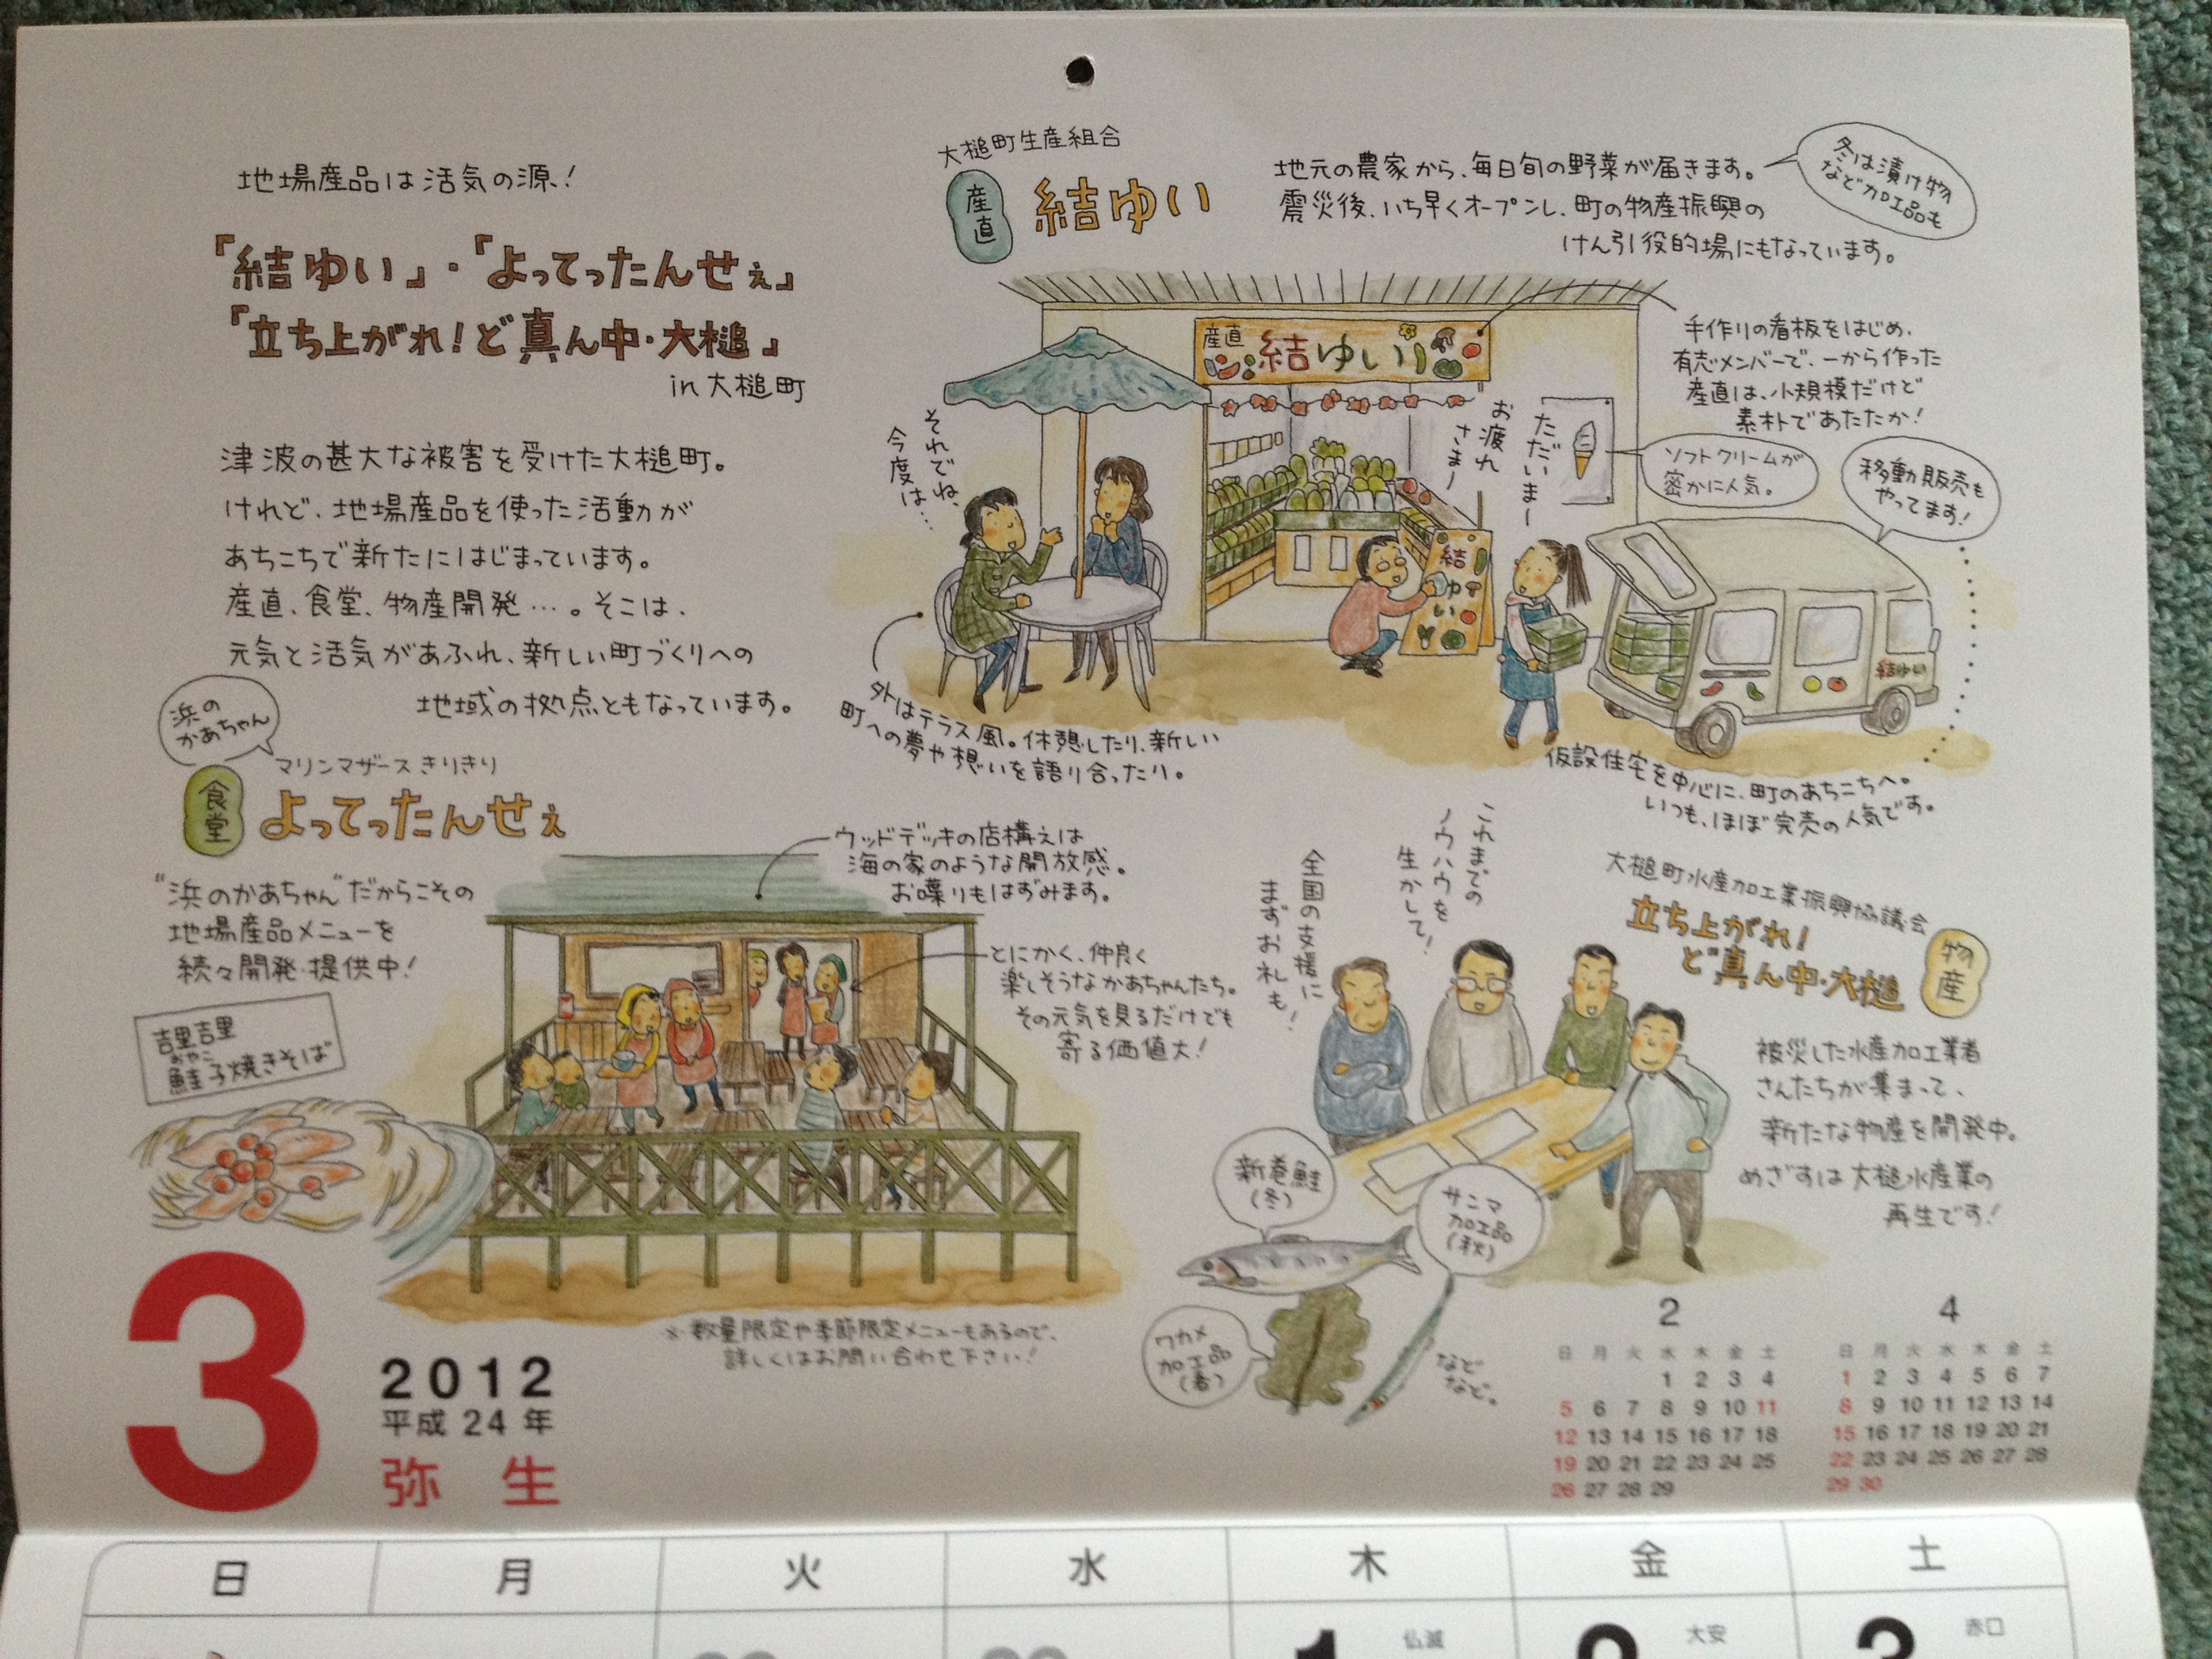 地場産品は活気の源!
『結ゆい』・『よってったんせぇ』
『立ち上がれ!ど真ん中・大槌』
in 大槌町
津波の甚大な被害を受けた大槌町。
けれど、地場産品を使った活動が
あちこちで新たにはじまっています。
産直、食堂、物産開発…。そこは、
元気と活気があふれ、新しい町づくりへの
地域の拠点ともなっています。
大槌町生産組合
産直
結ゆい
地元の農家から、毎日旬の野菜が届きます。
震災後、いち早くオープンし、町の物産振興の
けん引役的場にもなっています。
冬は漬け物
など加工品も
手作りの看板をはじめ、
有志メンバーで、一から作った
産直は、小規模だけど
素朴であたたか!
産直 結ゆい
それでね、
今度は…
お疲れ
さまー
ただいまー
ソフトクリームが
密かに人気。
移動販売も
やってます!
結ゆい
結ゆい
外はテラス風。休憩したり、新しい
町への夢や想いを語り合ったり。
仮設住宅を中心に、町のあちこちへ。
いつも、ほぼ完売の人気です。
浜の
かあちゃん
マリンマザーズきりきり
食堂
よってったんせぇ
"浜のかあちゃん"だからこその
地場産品メニューを
続々開発・提供中!
吉里吉里
おやこ
鮭子焼きそば
ウッドデッキの店構えは
海の家のような開放感。
お喋りもはずみます。
とにかく、仲良く
楽しそうなかあちゃんたち。
その元気を見るだけでも
寄る価値大!
※数量限定や季節限定メニューもあるので、
詳しくはお問い合わせ下さい!
大槌町水産加工業振興協議会
立ち上がれ!
ど真ん中・大槌
物産
これまでの
ノウハウを
生かして!
全国の支援に
まずお礼も!
被災した水産加工業者
さんたちが集まって、
新たな物産を開発中。
めざすは大槌水産業の
再生です!
新巻鮭
(冬)
サンマ
加工品
(秋)
ワカメ
加工品
(春)
など
など。
3
2012
平成 24 年
弥 生
2
日 月 火 水 木 金 土
1 2 3 4
5 6 7 8 9 10 11
12 13 14 15 16 17 18
19 20 21 22 23 24 25
26 27 28 29
4
日 月 火 水 木 金 土
1 2 3 4 5 6 7
8 9 10 11 12 13 14
15 16 17 18 19 20 21
22 23 24 25 26 27 28
29 30
日 月 火 水 木 金 土
1 仏滅 2 大安 3 赤口